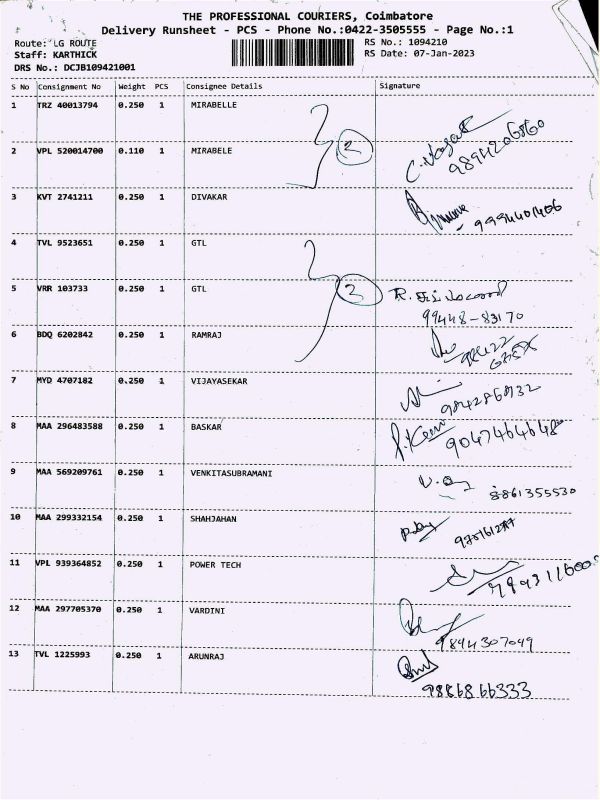 THE PROFESSIONAL COURIERS, Coimbatore
Delivery Runsheet - PCS - Phone No.:0422-3505555 - Page No.:1
Route: LG ROUTE RS No.: 1094210
Staff: KARTHICK RS Date: 07-Jan-2023
DRS No.: DCJB109421001
S No Consignment No Weight PCS Consignee Details Signature
1 TRZ 40013794 0.250 1 MIRABELLE
2 VPL 520014700 0.110 1 MIRABELE 2
3 KVT 2741211 0.250 1 DIVAKAR
9994401406
4 TVL 9523651 0.250 1 GTL
5 VRR 103733 0.250 1 GTL
99448-83170
6 BDQ 6202842 0.250 1 RAMRAJ
7 MYD 4707182 0.250 1 VIJAYASEKAR
8 MAA 296483588 0.250 1 BASKAR
9 MAA 569209761 0.250 1 VENKITASUBRAMANI
8861355530
10 MAA 299332154 0.250 1 SHAHJAHAN
11 VPL 939364852 0.250 1 POWER TECH
12 MAA 297705370 0.250 1 VARDINI
9844307049
13 TVL 1225993 0.250 1 ARUNRAJ
9886866333